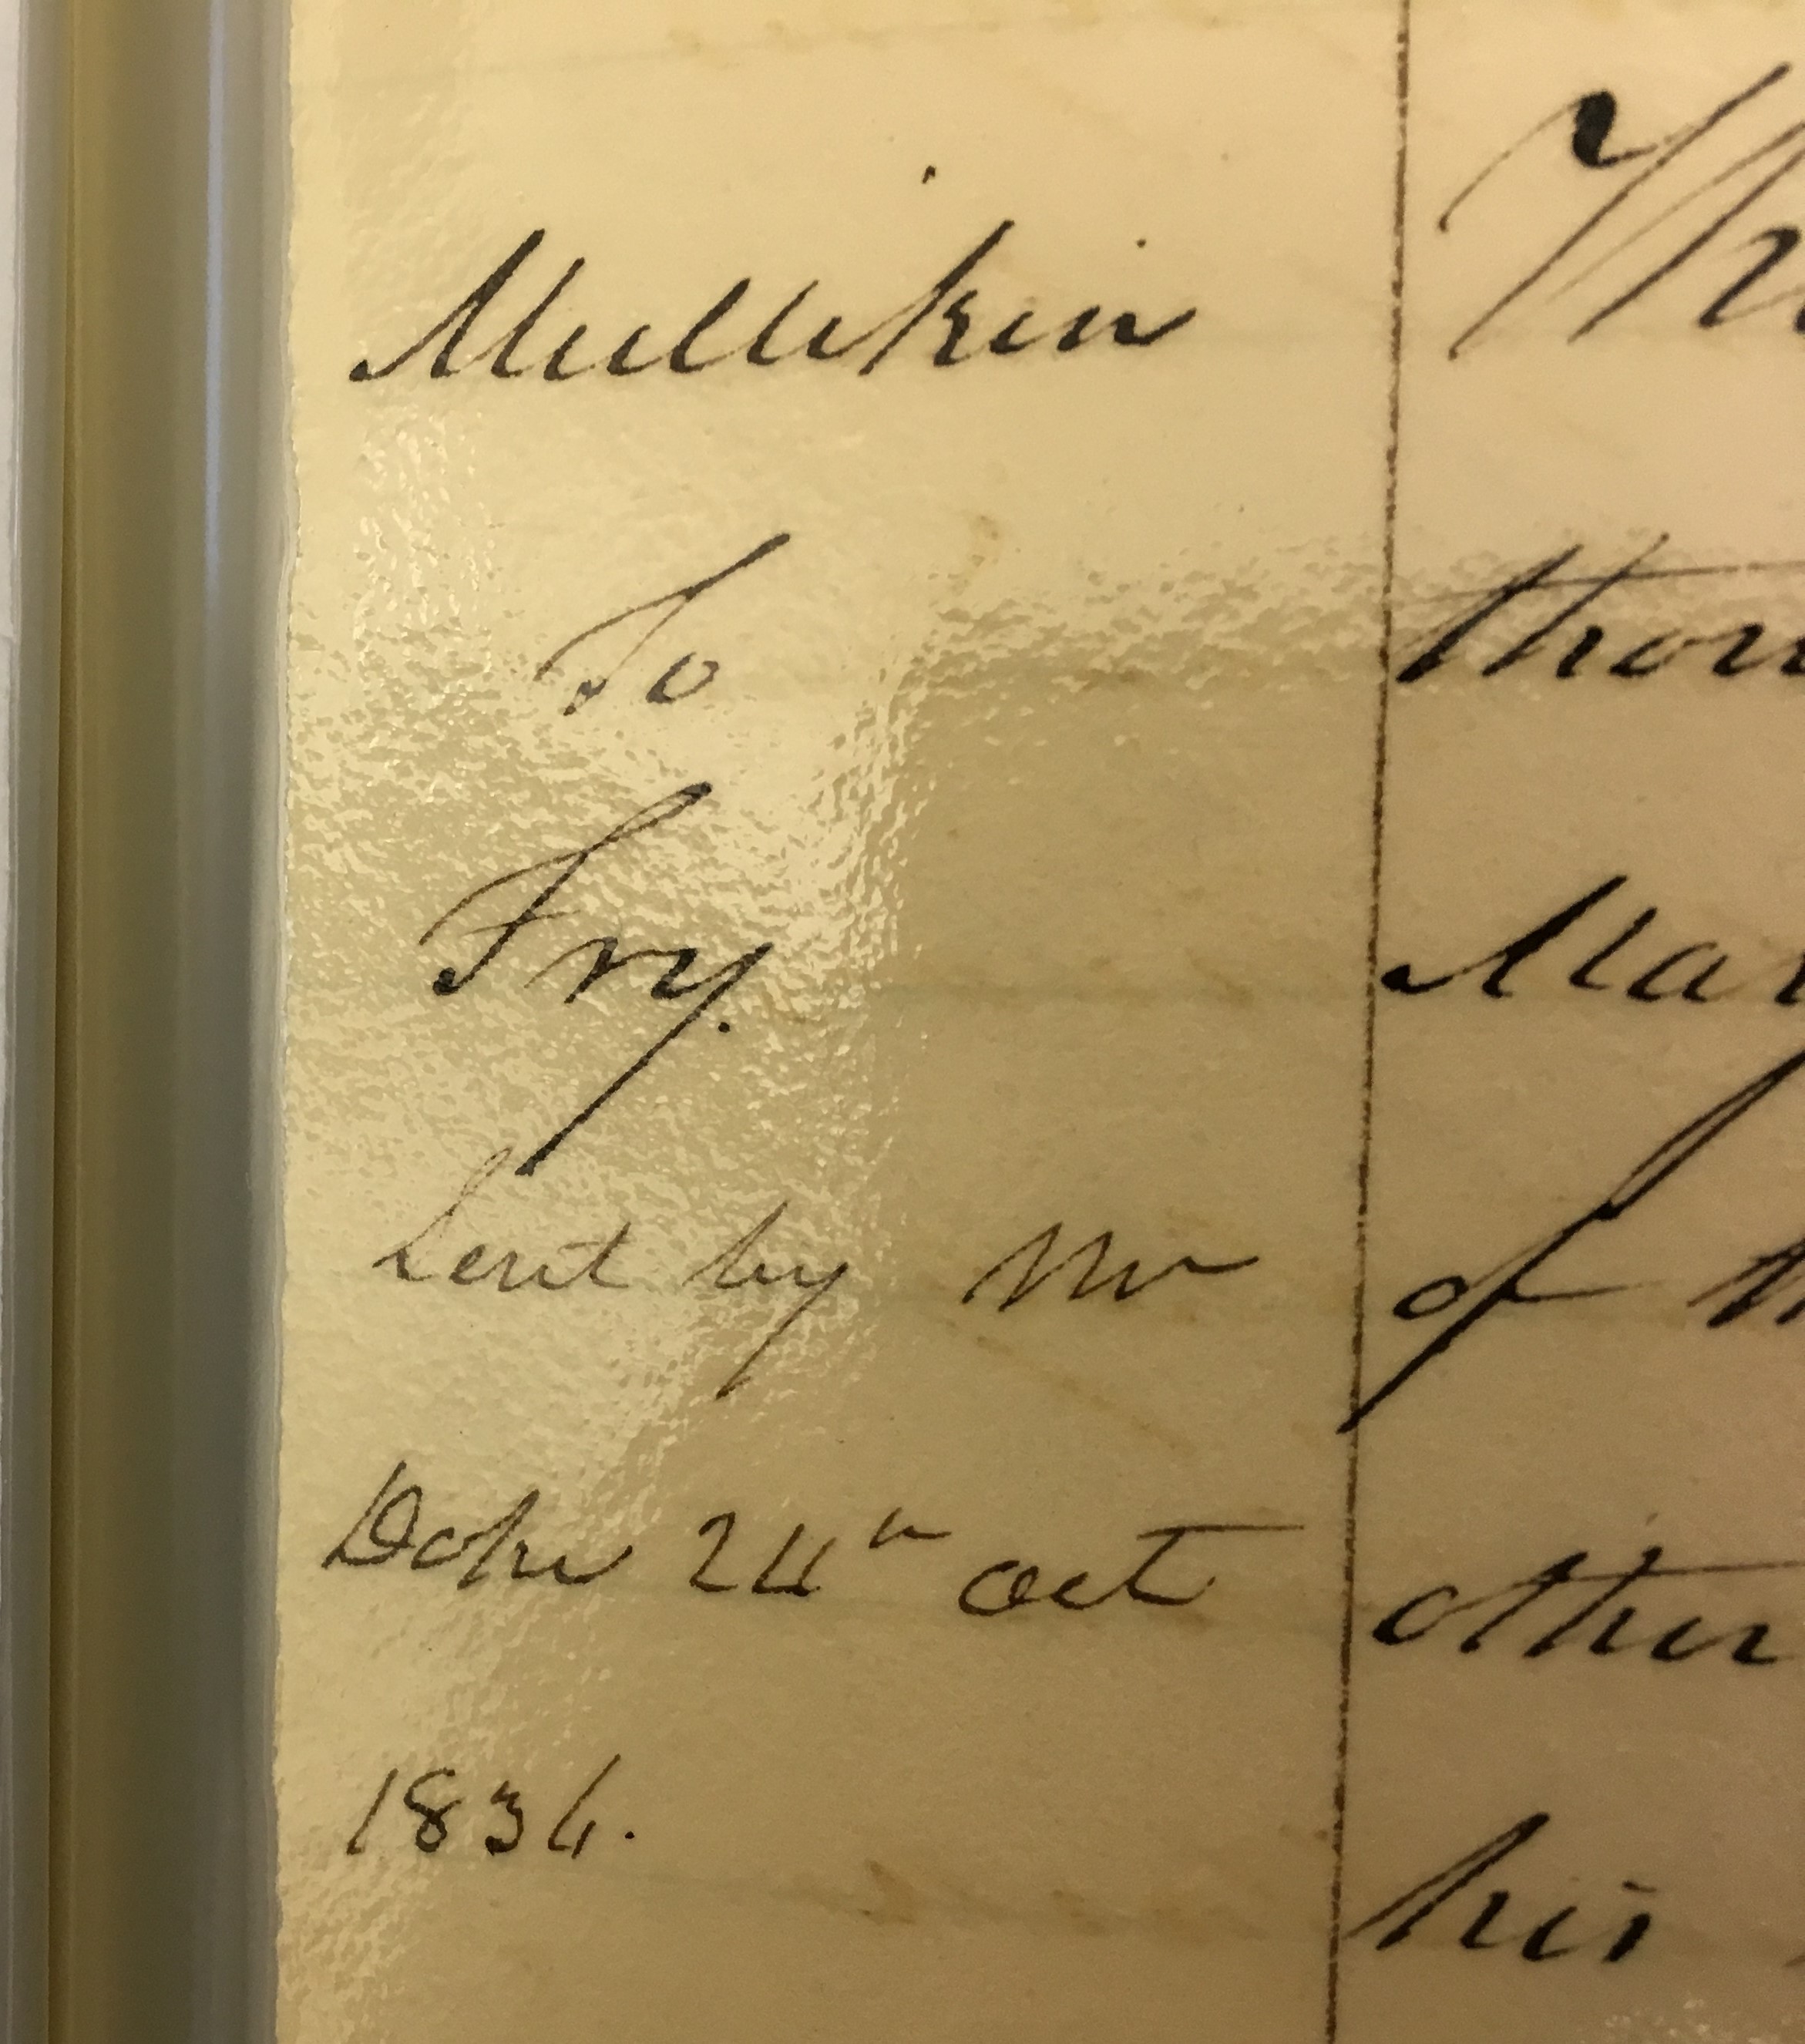 Mullikin
To
Fry.
Sent by Mr
24th Oct
1834.
Th
thou
Mar
of th
other
his